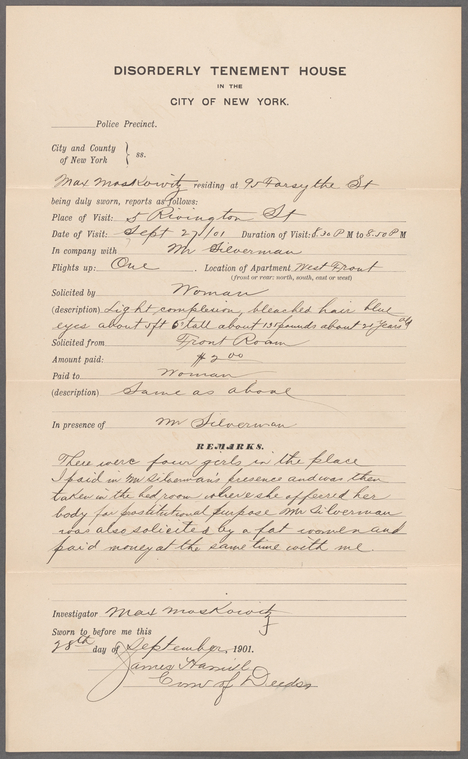 DISORDERLY TENEMENT HOUSE
IN THE
CITY OF NEW YORK.
Police Precinct.
City and County
of New York } ss.
Max Moskowitz residing at 95 Forsythe St
being duly sworn, reports as follows:
Place of Visit: 5 Rivington St
Date of Visit: Sept 27/01 Duration of Visit: 8.30 P M to 8.50 P M
In company with Mr Silverman
Flights up: One . Location of Apartment West Front
(front or rear: north, south, east or west)
Solicited by Woman
(description) Light complexion, bleached hair blue
eyes about 5ft 5 tall about 135 pounds about 21 years old
Solicited from Front Room
Amount paid: $2.00
Paid to Woman
(description) Same as above
In presence of Mr Silverman
REMARKS.
There were four girls in the place
I paid in Mr Silverman's presence and was then
taken in the bed room where she offered her
body for prostitutional purpose Mr Silverman
was also solicited by a fat women and
paid money at the same time with me.
Investigator Max Moskowitz
Sworn to before me this
28th day of September, 1901.
James Hamill
Com of Deeds